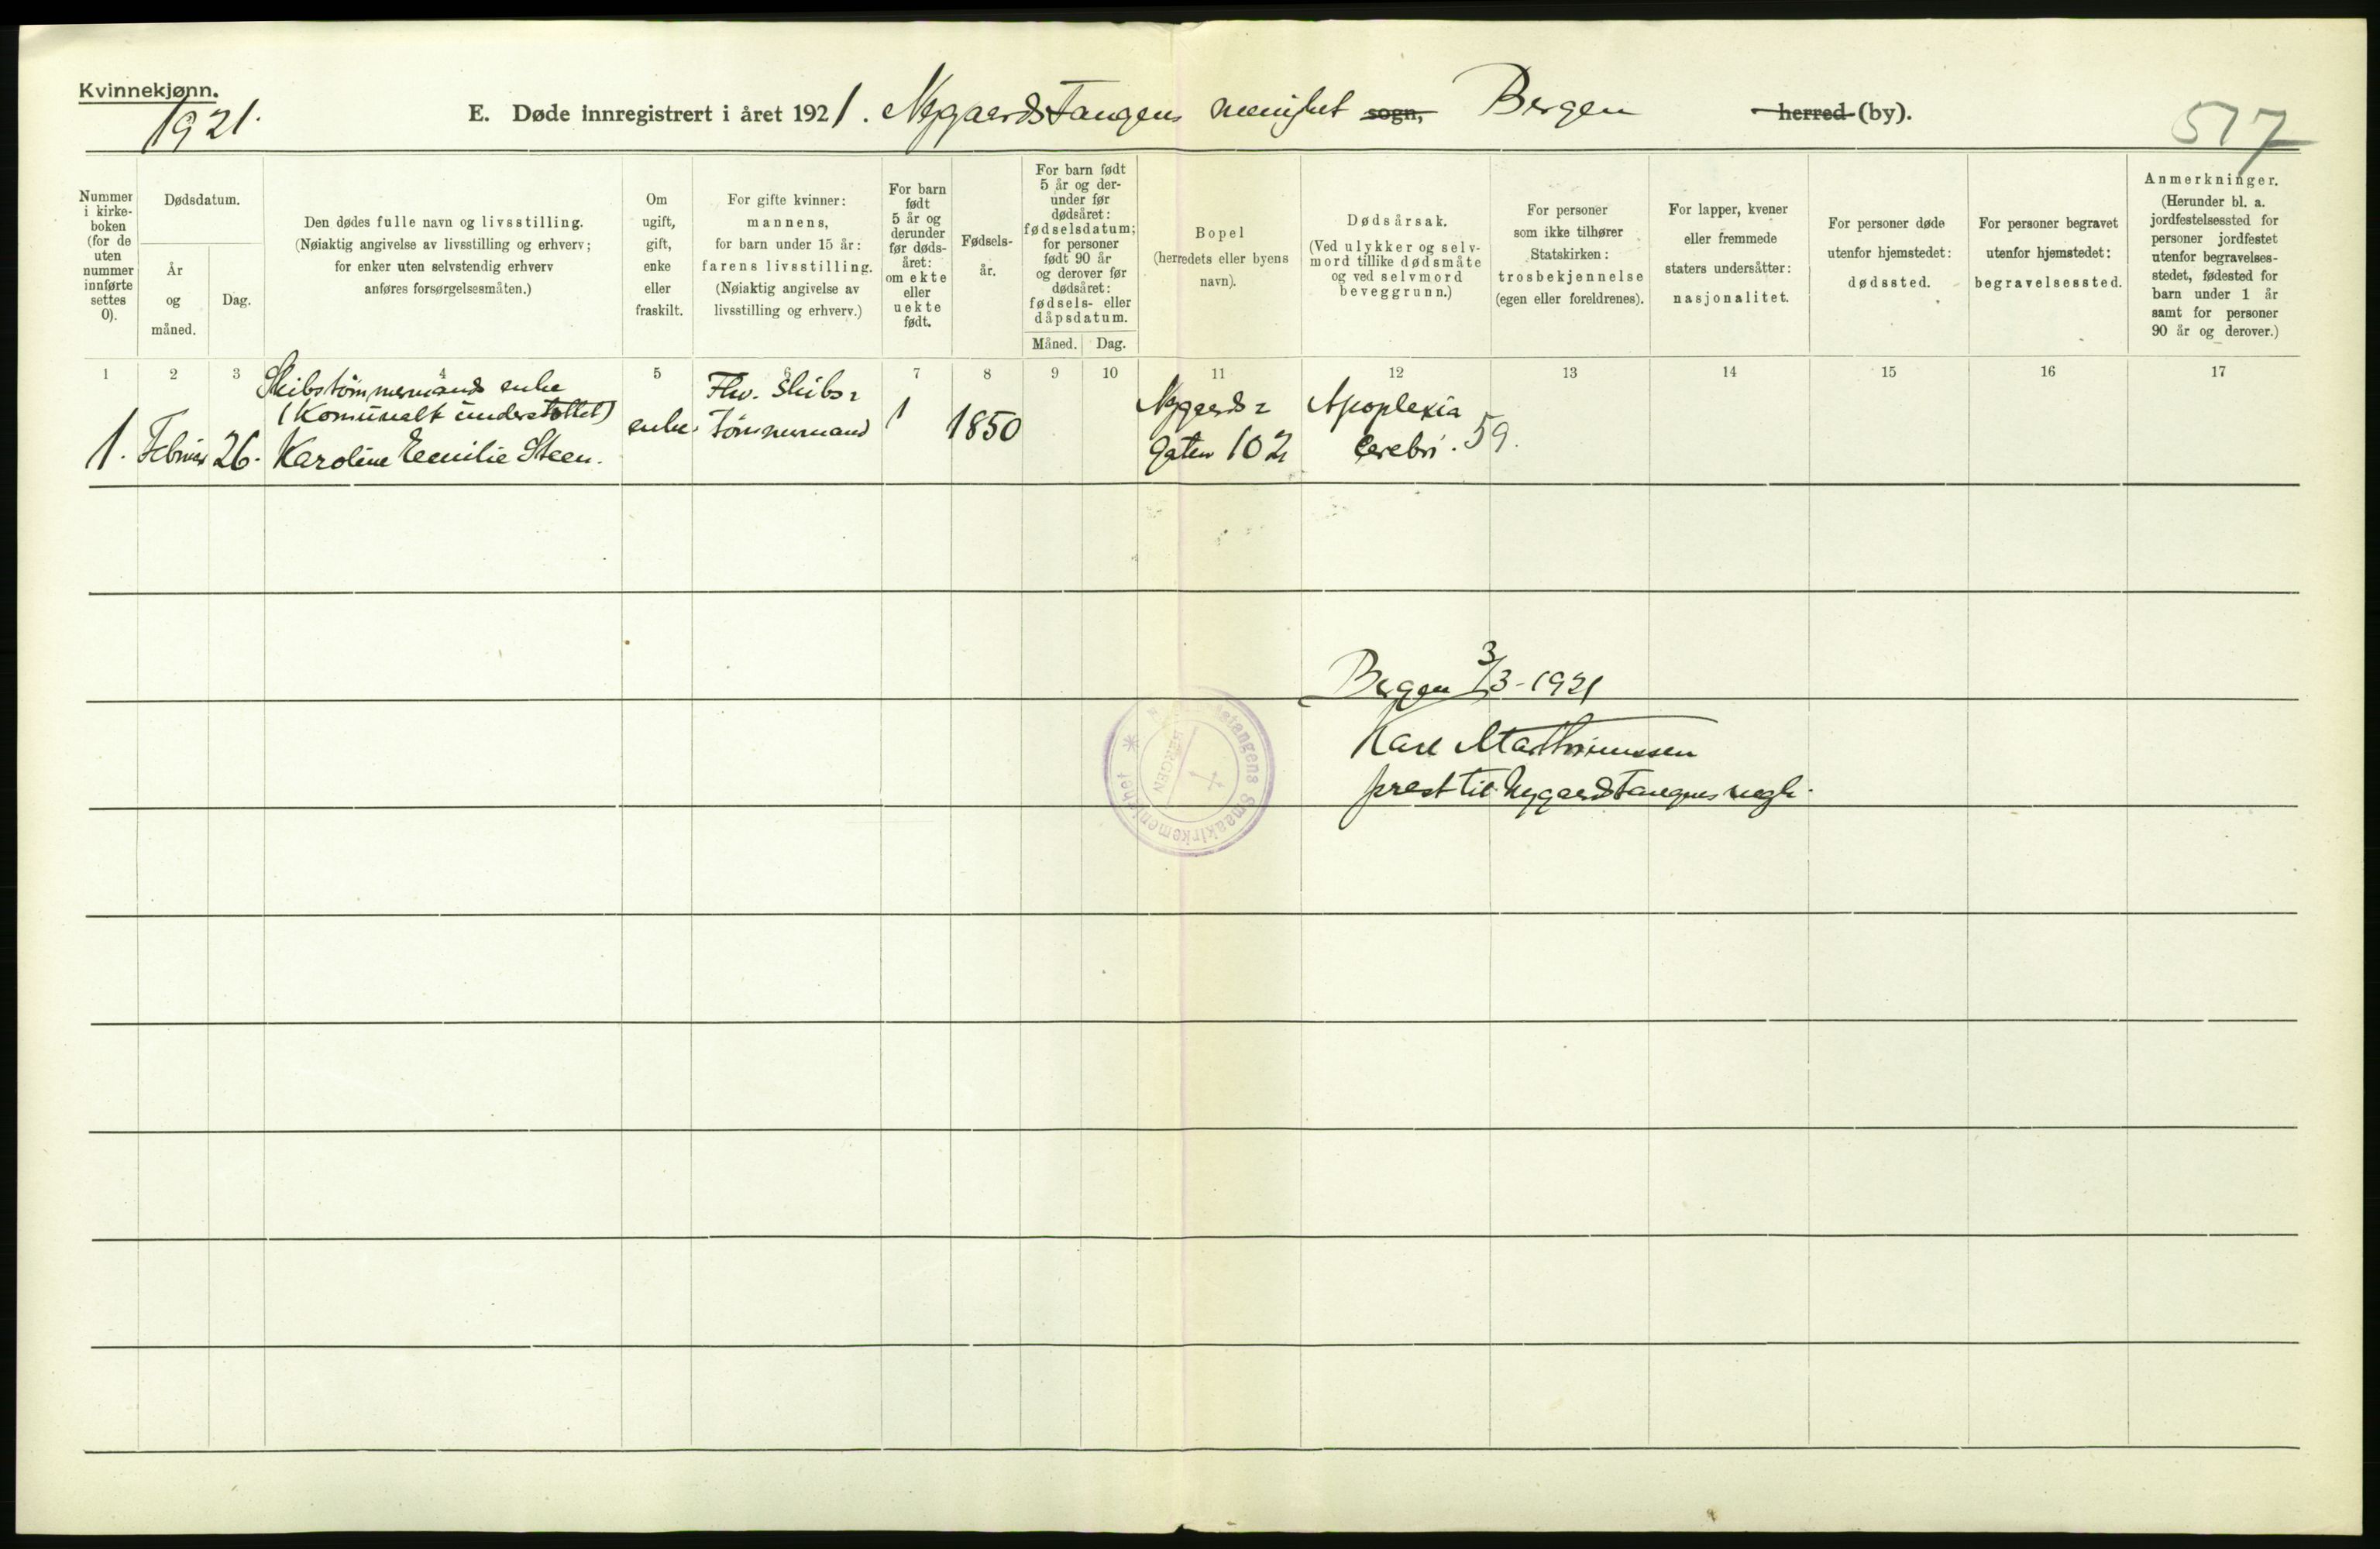 Kvinnekjønn.
1921.
E. Døde innregistrert i året 1921. Nygaardstangens menighet sogn, Bergen herred (by).
517
Nummer
i kirke-
boken
(for de
uten
nummer
innførte
settes
0).
Dødsdatum.
År
og
måned.
Dag.
Den dødes fulle navn og livsstilling.
(Nøiaktig angivelse av livsstilling og erhverv;
for enker uten selvstendig erhverv
anføres forsørgelsesmåten.)
Om
ugift,
gift,
enke
eller
fraskilt.
For gifte kvinner:
mannens,
for barn under 15 år:
farens livsstilling.
(Nøiaktig angivelse av
livsstilling og erhverv.)
For barn
født
5 år og
derunder
før døds-
året:
om ekte
eller
uekte
født.
Fødsels-
år.
For barn født
5 år og der-
under før
dødsåret:
fødselsdatum;
for personer
født 90 år
og derover før
dødsåret:
fødsels- eller
dåpsdatum.
Måned.
Dag.
Bopel
(herredets eller byens
navn).
Dødsårsak.
(Ved ulykker og selv-
mord tillike dødsmåte
og ved selvmord
beveggrunn.)
For personer
som ikke tilhører
Statskirken:
trosbekjennelse
(egen eller foreldrenes).
For lapper, kvener
eller fremmede
staters undersåtter:
nasjonalitet.
For personer døde
utenfor hjemstedet:
dødssted.
For personer begravet
utenfor hjemstedet:
begravelsessted.
Anmerkninger.
(Herunder bl. a.
jordfestelsessted for
personer jordfestet
utenfor begravelses-
stedet, fødested for
barn under 1 år
samt for personer
90 år og derover.)
1 2 3 4 5 6 7 8 9 10 11 12 13 14 15 16 17
1.
Februar
26.
Skibstömmermands enke
(Komunalt understøttet)
Karoline Emilie Steen.
enke.
Fhv. Skibs=
tömmermand
1
1850
Nygaards=
gaten 102
Apoplexia
cerebri. 59.
Bergen 3/3-1921
Karl Marthinussen
prest til Nygaardstangens megh.
Smaakirkemenighet
BERGEN